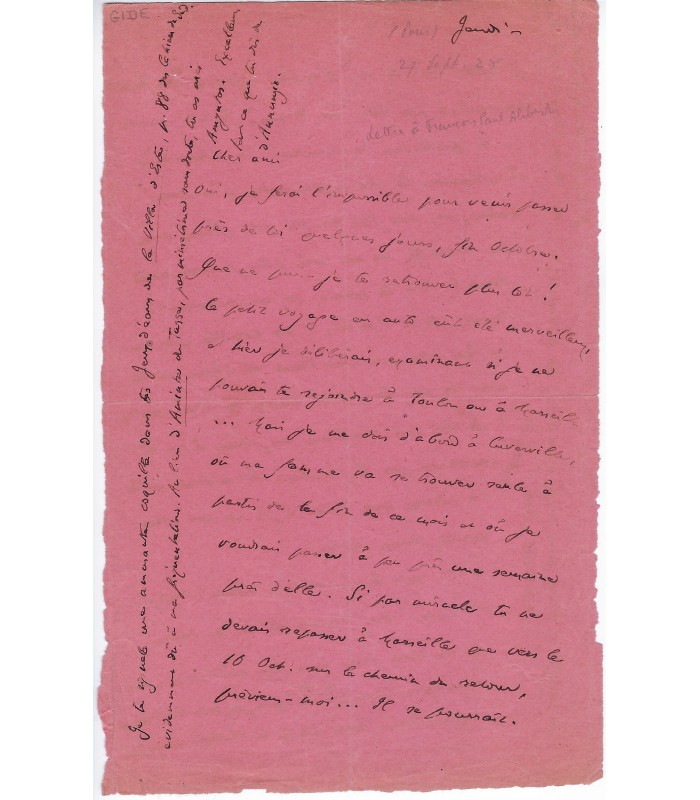 GIDE
(Paris) Jeudi
27 Sept. 28
Lettre à François Paul Alibert
Cher ami
Oui, je ferai l'impossible pour venir passer
près de toi quelques jours, fin Octobre.
Que ne puis-je te retrouver plus tôt !
Le petit voyage en auto eût été merveilleux,
et hier je délibérais, examinant si je ne
pouvais te rejoindre à Toulon ou à Marseille
... Mais je me dois d'abord à Cuverville,
où ma femme va se trouver seule à
partir de la fin de ce mois et où je
voudrais passer à peu près une semaine
près d'elle. Si par miracle tu ne
devais repasser à Marseille que vers le
10 Oct. sur le chemin du retour,
préviens-moi... Il se pourrait.
Je te signale une amusante coquille dans tes Jeux d'eaux de la Villa d'Este, p. 88
évidemment dû à ma Au lieu d'Aminta du Tasse, par sans doute, tu as mis
Amyntas. Excellent
tout ce que tu dis de
d'Annunzio.